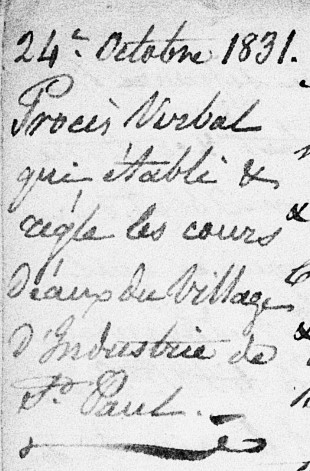 24e Octobre 1831.
Procès Verbal
qui établi &
règle les cours
d'éaux du Village
d'Industrie de
St. Paul.